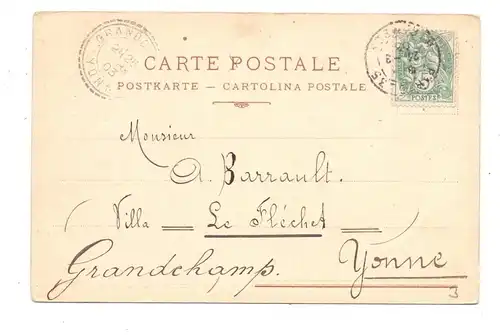 CARTE POSTALE
POSTKARTE — CARTOLINA POSTALE
GRANDC
YONNE
03
35
5
POSTES
Monsieur
A. Barrault.
Villa = Le Fléchet =
Grandchamp. Yonne
3